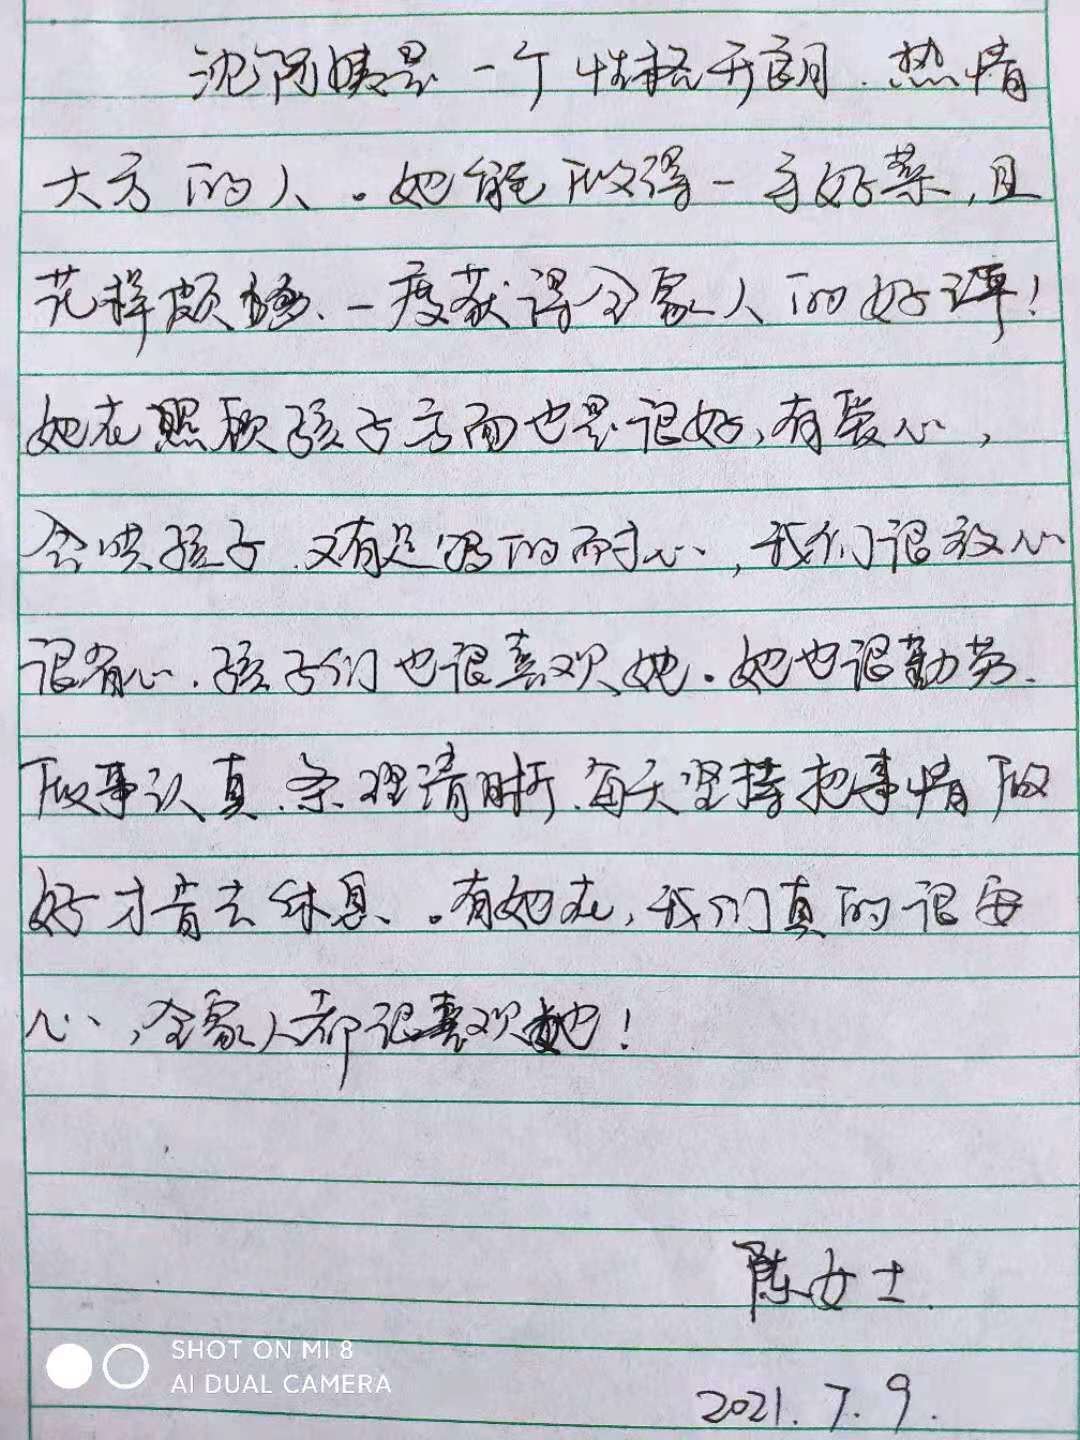 沈阿姨是一个性格开朗.热情
大方的人。她能做得一手好菜,且
花样颇多、一度获得全家人的好评!
她在照顾孩子方面也是很好,有爱心,
会哄孩子.又有足够的耐心,我们很放心
很省心.孩子们也很喜欢她。她也很勤劳.
做事认真.条理清晰.每天坚持把事情做
好才肯去休息、。有她在,我们真的很安
心,全家人都很喜欢她!
陈女士.
2021.7.9.
SHOT ON MI 8
AI DUAL CAMERA